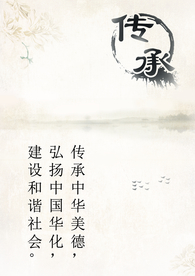 传承
传承中华美德，
弘扬中国华化，
建设和谐社会。